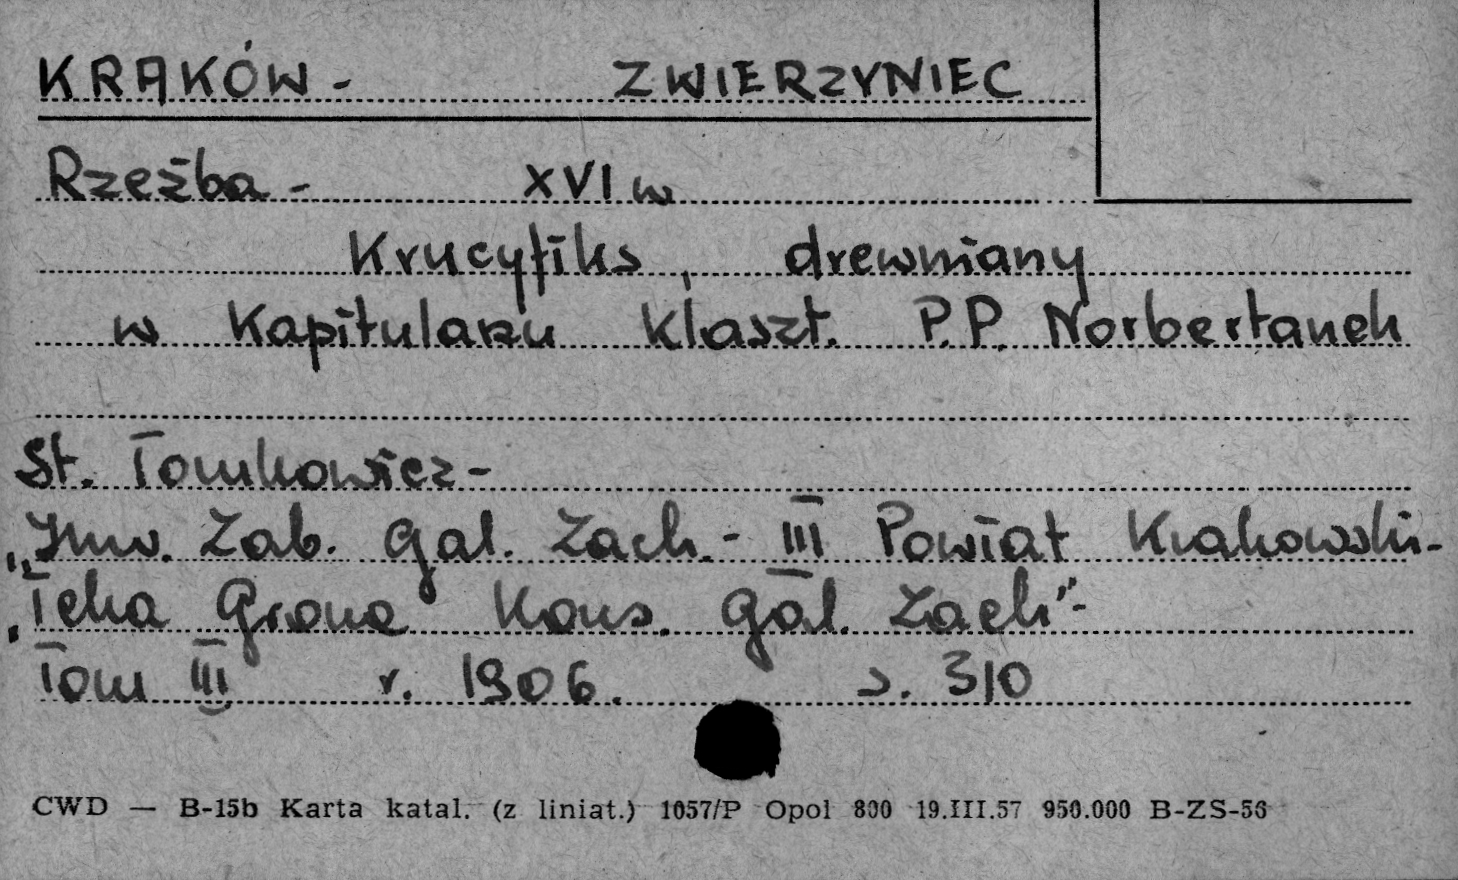 KRAKÓW - ZWIERZYNIEC
Rzeźba - XVI w
Krucyfiks, drewniany
w Kapitularzu klaszt. P.P. Norbertanek
St. Tomkowicz -
"Inw. Zab. Gal. Zach. - III Powiat Krakowski -
"Teka Grona Kons. Gal. Zach" -
Tom III r. 1906. s. 310
CWD — B-15b Karta katal. (z liniat.) 1057/P Opol 800 19.III.57 950.000 B-ZS-56